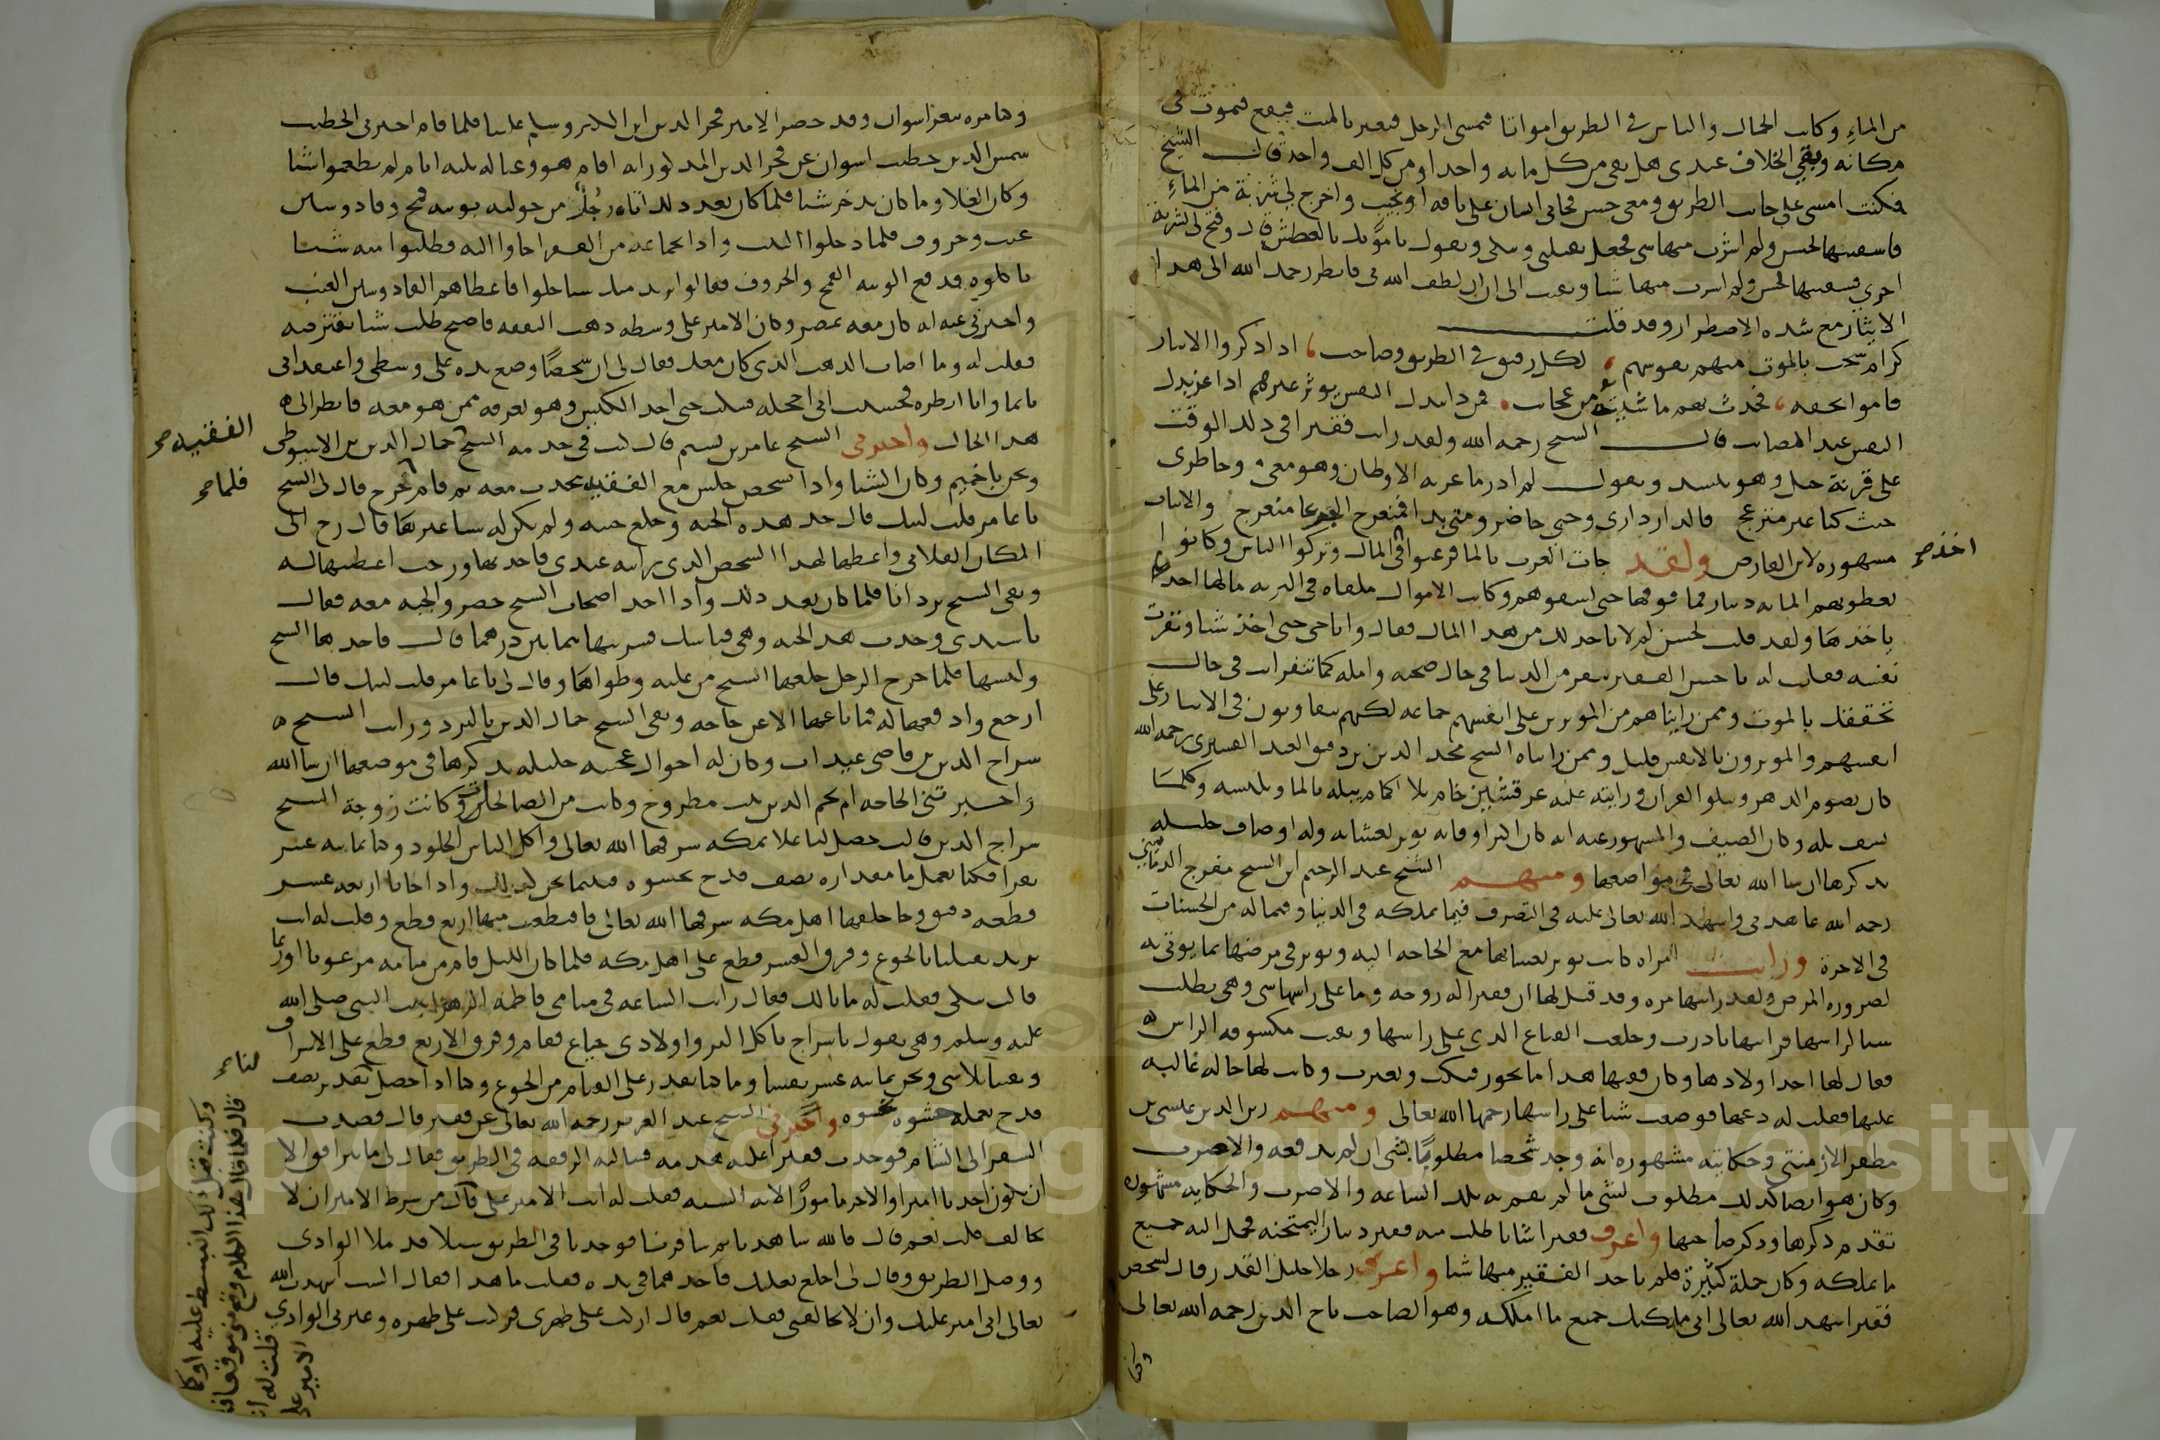 من الماء وكانت الجمال والناس في الطريق امواتا فيمشي الرجل فيعبر بالميت فيقع فيموت في
مكانه وبقي الخلاف عندي هل بقي من كل مائه واحد او من كل الف واحد قال الشيخ
فكنت امشي على جانب الطريق ومعي حسن فجاني انسان على ناقه او نجيب واخرج لي شربة من الماء
فاسقيتها لحسن ولم اشرب منها شي فجعل يقبلني ويبكي ويقول يا مويد بالعطش قد وفتح لي شربة
اخرى فسقيتها لحسن ولم اشرب منها شيا وبقيت الى ان لطف الله بي فانظر رحمك الله الى هذا
الايثار مع شده الاضطرار وقد قلت
كرام سخت بالموت منهم نفوسهم ، لكل رفيق في الطريق وصاحب ، اذا ذكروا الايثار
قاموا بحقه ، فحدث بهم ما شيته من عجايب ، فمن ذا يبذل النفس يوثر غيرهم اذا عز بذل
النفس عند المصايب قال الشيخ رحمه الله ولقد رايت فقيرا في ذلك الوقت
على قربة جمل وهو ينشد ويقول لم ادر ما غربه الاوطان وهو معي وخاطري
حيث كنا غير منزعج فالدار داري وحبي حاضر ومتى بدا فمنعرج الجرعا منعرجي والابيات
مشهوره لابن الفارض ولقد جات العرب بالما فرغبوا في المال وتركوا الناس وكانوا
يعطونهم المايه دينار فما فوقها حتى يسقوهم وكانت الاموال ملقاه في البريه ما لها احد
ياخذها ولقد قلت لحسن لم لا تاخذ لك من هذا المال فقال وانا حي حتى اخذ شيا ونفرت
نفسه فقلت له يا حسن الفقير ينفر من الدنيا في حال صحته وامله كما تنفر انت في حال
تحققك بالموت وممن رايناهم من الموثرين على انفسهم جماعه لكنهم يتفاوتون في الايثار على
انفسهم والموثرون بالانفس قليل وممن رايناه الشيخ مجد الدين بن دقيق العيد القشيري رحمه الله
كان يصوم الدهر ويتلو القران ورايته عليه عرقشين خام بلا اكمام يبله بالما ويلبسه وكلما
نشف بله وكان الصيف والمشهور عنه انه كان اكثر اوقاته يوثر بعشايه وله اوصاف جليله
نذكرها ان شا الله تعالى في مواضعها ومنهم الشيخ عبد الرحيم ابن الشيخ مفرج الدماميني
رحمه الله عاهدني واشهد الله تعالى عليه في التصرف فيما يملكه في الدنيا وفيما له من الحسنات
في الاخرة ورايت امراه كانت توثر بغشايها مع الحاجه اليه وتوثر في مرضها بما يوتى به
لضروره المرض ولقد رايتها مره وقد قيل لها ان فقيرا له زوجه وما على راسها شي وهي تطلب
شيا لراسها فرايتها بادرت وخلعت القناع الذي على راسها وبقيت مكشوفه الراس
فقال لها احد اولادها وكان فقيها هذا ما يجوز فبكت وتغيرت وكانت لها حاله غالبه
عليها فقلت له دعها فوضعت شيا على راسها رحمها الله تعالى ومنهم زين الدين عيسى بن
مظفر الارمنتي وحكايته مشهوره انه وجد شخصا مطلوبا بشي ان لم يدفعه والا ضرب
وكان هو ايضا كذلك مطلوب بشي ما لم يقم به تلك الساعه والا ضرب والحكايه مشهوره
تقدم ذكرها وذكر صاحبها واعرف فقيرا شابا طلب منه فقير دينارا ليمتحنه فحمل اليه جميع
ما يملكه وكان جملة كثيرة فلم ياخذ الفقير منها شيا واعرف رجلا جليل القدر قال لشخص
فقير اشهد الله تعالى اني ملكتك جميع ما املكه وهو الصاحب تاج الدين رحمه الله تعالى
اخذ صح
وها مره بثغر اسوان وقد حضر الامير فخر الدين ابن الكنز وسلم علينا فلما قام اخبرني الخطيب
شمس الدين خطيب اسوان عن فخر الدين المذكور انه اقام هو وعياله ثلثه ايام لم يطعموا شيا
وكان الغلا وما كان يدخر شيا فلما كان بعد ذلك اتاه رجل من حوليه بويبه قمح وقادوس
عنب وخروف فلما دخلوا البيت واذا بجماعه من الفقرا جاوا اليه فطلبوا منه شيا
ياكلوه فدفع الويبه القمح والخروف فقالوا نريد شيا حلوا فاعطاهم القادوس العنب
واخبرني عنه انه كان معه بمصر وكان الامير على وسطه ذهب النفقه فاصبح طلب شيا يقترضه
فقلت له وما اصاب الذهب الذي كان معك فقال لي ان شخصا وضع يده على وسطي واعتقد اني
نايما وانا انظره فخشيت اني اخجله فسكت حتى اخذ الكيس وهو يعرفه ممن هو معه فانظر الى
هذا الحال واخبرني الشيخ عامر بن قال كنت في خدمه الشيخ جمال الدين بن الاسيوطي
ونحن باخميم وكان الشتا واذا شخص جلس مع الفقيه يحدث معه ثم قام خرج قال لي الشيخ
يا عامر قلت لبيك قال خذ هذه الجبه وخلع جبته ولم يكن له شيا غيرها قال رح الى
المكان الفلاني واعطها لهذا الشخص الذي رايته عندي فاخذتها ورحت اعطيتها له
وبقي الشيخ بردانا فلما كان بعد ذلك واذا احد اصحاب الشيخ حضر والجبه معه فقال
يا سيدي وجدت هذه الجبه وهي قماشك فشريتها بثمانين درهما قال فاخذها الشيخ
ولبسها فلما خرج الرجل خلعها الشيخ من عليه وطواها وقال لي يا عامر قلت لبيك قال
ارجع وادفعها له فما باعها الا عن حاجه وبقي الشيخ جمال الدين بالبرد ورايت الشيخ
سراج الدين بن قاضي عيذاب وكان له احوال عجيبه جليله نذكرها في موضعها ان شا الله
واخبرتني الحاجه ام نجم الدين بنت مطروح وكانت من الصالحات وكانت زوجة الشيخ
سراج الدين قالت حصل لنا غلا بمكه شرفها الله تعالى واكل الناس الجلود وكنا ثمانيه عشر
نفرا فكنا نعمل ما مقداره نصف قدح نحسوه فبينما نحن كذلك واذا جانا اربعه عشر
قطعه دقيق وجا خلفها اهل مكه شرفها الله تعالى فاقتطعت منها اربع قطع وقلت له انت
تريد تقتلنا بالجوع وفرق العشر قطع على اهل مكه فلما كان الليل قام من منامه مرعوبا
قالت يبكي فقلت له ما بالك فقال رايت الساعه في منامي فاطمه الزهرا بنت النبي صلى الله
عليه وسلم وهي تقول يا سراج تاكل البر واولادي جياع فقام وفرق الاربع قطع على الاشراف
وبقينا بلا شي ونحن ثمانيه عشر نفسا وما كنا نقدر على القيام من الجوع وكنا اذا حصل نقدر نصف
قدح نعمله حشوه نحسوه واخبرني الشيخ عبد العزيز رحمه الله تعالى عن فقير قال قصدت
السفر الى الشام فوجدت فقيرا عليه هدمه فسالته الرفقه في الطريق فقال لي ما نترافق الا
ان يكون احدنا اميرا والاخر مامورا لاته السنه فقلت له انت الامير علي قال من شرط الامير ان لا
يخالف قلت نعم قال فالله شاهدنا ثم سافرنا فوجدنا في الطريق سيلا قد ملا الوادي
ووصل الطريق وقال لي اخلع نعليك فاخذهما في يده فقلت ما هذا فقال الست اشهدت الله
تعالى اني امير عليك وان لا تخالفني فقلت نعم قال اركب على ظهري فركبت على ظهره وعبر بي الوادي
الفقيه صح
فلما صح
لنا صح